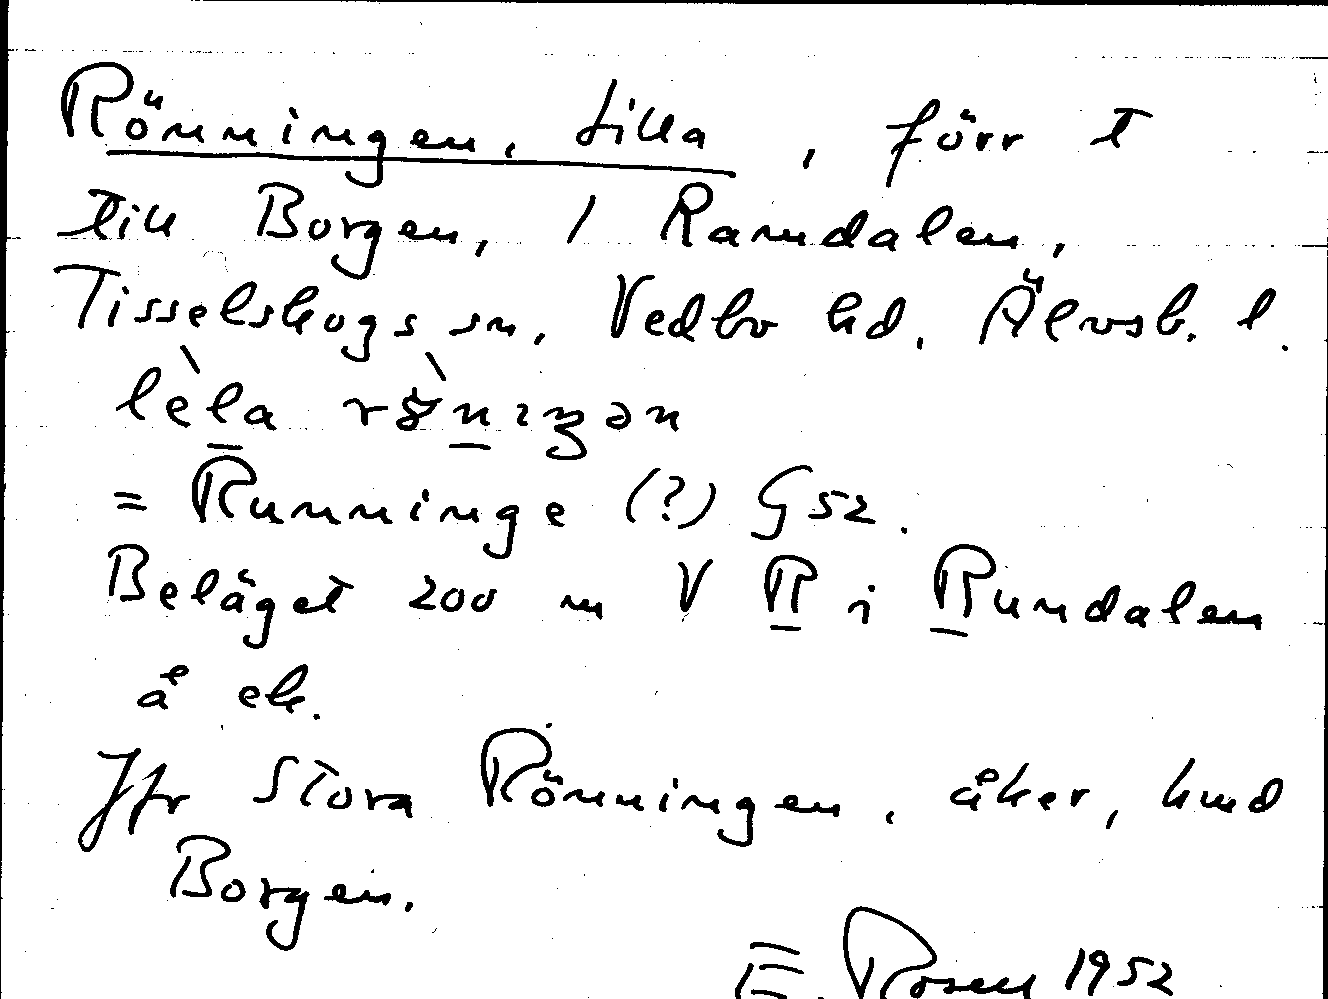 Rönningen, Lilla, förr t
till Borgen, 1 Ramdalen,
Tisselskogs sn, Vedbo hd, Älvsb. l.
lèla rönıŋən
= Runninge (?) G 52.
Beläget 200 m V R i Rundalen
å ek.
Jfr Stora Rönningen, åker, hmd
Borgen.
E. Rosell 1952